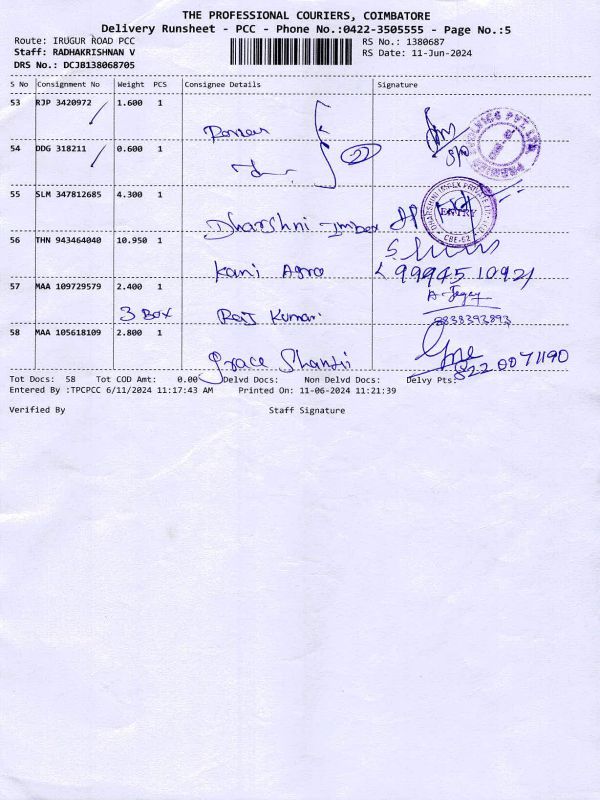 THE PROFESSIONAL COURIERS, COIMBATORE
Delivery Runsheet - PCC - Phone No.:0422-3505555 - Page No.:5
Route: IRUGUR ROAD PCC RS No.: 1380687
Staff: RADHAKRISHNAN V RS Date: 11-Jun-2024
DRS No.: DCJB138068705
S No Consignment No Weight PCS Consignee Details Signature
53 RJP 3420972 1.600 1
54 DDG 318211 0.600 1
22
55 SLM 347812685 4.300 1
Dharshni Imbex
DHARSHINI IMPEX PRIVATE LTD ENTRY CBE-62
56 THN 943464040 10.950 1
Kani Agro 9994510921
57 MAA 109729579 2.400 1
3 Box Raj Kumar 8838393893
58 MAA 105618109 2.800 1
Grace Shanti 822 0071190
Tot Docs: 58 Tot COD Amt: 0.00 Delvd Docs: Non Delvd Docs: Delvy Pts:
Entered By :TPCPCC 6/11/2024 11:17:43 AM Printed On: 11-06-2024 11:21:39
Verified By Staff Signature